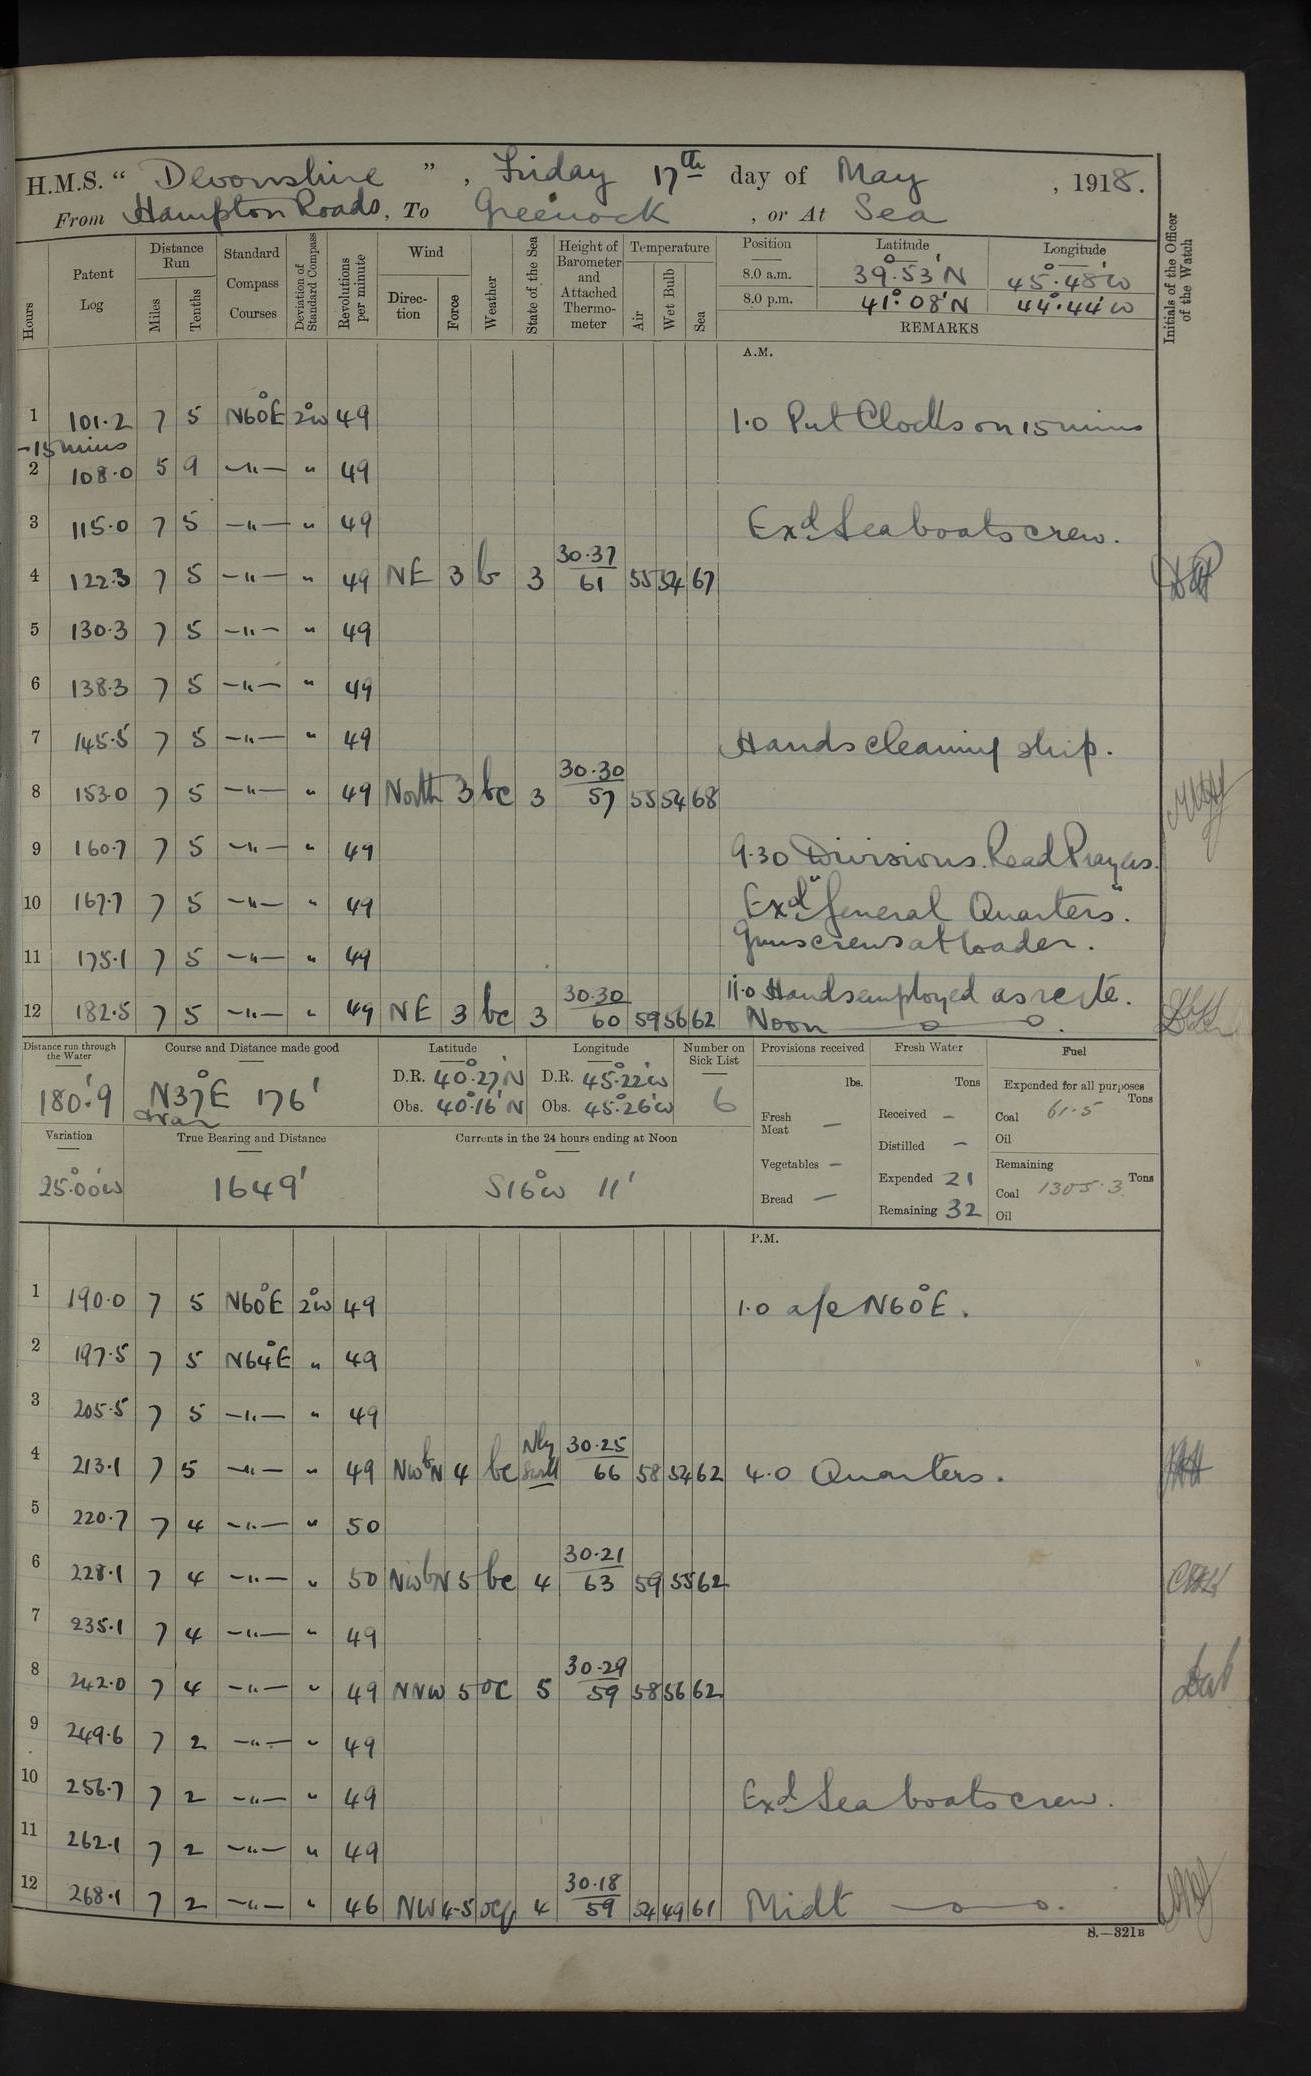 H.M.S. “ Devonshire ” , Friday 17th day of May , 1918.
From Hampton Roads, To Greenock , or At Sea
Hours
Patent Log
Distance Run
Miles
Tenths
Standard Compass Courses
Deviation of Standard Compass
Revolutions per minute
Wind
Direc-tion
Force
Weather
State of the Sea
Height of Barometer and Attached Thermo-meter
Temperature
Air
Wet Bulb
Sea
Position Latitude Longitude
8.0 a.m. 39°.53'N 45°.48'W
8.0 p.m. 41°.08'N 44°.44'W
REMARKS
Initials of the Officer of the Watch
A.M.
1 101.2 7 5 N60°E 2°W 49 1.0 Put Clocks on 15 mins
-15 mins
2 108.0 5 9 —"— " 49
3 115.0 7 5 —"— " 49 Exd Sea boats crew.
4 122.3 7 5 —"— " 49 NE 3 b 3 30.37 61 55 54 67
5 130.3 7 5 —"— " 49
6 138.3 7 5 —"— " 49
7 145.5 7 5 —"— " 49 Hands cleaning ship.
8 153.0 7 5 —"— " 49 North 3 bc 3 30.30 57 55 54 68
9 160.7 7 5 —"— " 49 9.30 Divisions. Read Prayers.
10 167.7 7 5 —"— " 49 Exd "General Quarters".
Guns crews at loader.
11 175.1 7 5 —"— " 49
11.0 Hands employed as reqte.
12 182.5 7 5 —"— " 49 NE 3 bc 3 30.30 60 59 56 62 Noon
Distance run through the Water
180'.9
Course and Distance made good
N37°E 176'
true
Latitude
D.R. 40°.27'N
Obs. 40°.16'N
Longitude
D.R. 45°.22'W
Obs. 45°.26'W
Number on Sick List
6
Variation
25°.00'W
True Bearing and Distance
1649'
Currents in the 24 hours ending at Noon
S16°W 11'
Provisions received
lbs.
Fresh Meat —
Vegetables —
Bread —
Fresh Water
Tons
Received —
Distilled —
Expended 21
Remaining 32
Fuel
Expended for all purposes
Tons
Coal 61.5
Oil
Remaining
Tons
Coal 1305.3
Oil
P.M.
1 190.0 7 5 N60°E 2°W 49 1.0 a/c N60°E.
2 197.5 7 5 N64°E " 49
3 205.5 7 5 —"— " 49
4 213.1 7 5 —"— " 49 NWbN 4 bc Nly Swell 30.25 66 58 54 62 4.0 Quarters.
5 220.7 7 4 —"— " 50
6 228.1 7 4 —"— " 50 NWbN 5 bc 4 30.21 63 59 55 62
7 235.1 7 4 —"— " 49
8 242.0 7 4 —"— " 49 NNW 5 oc 5 30.29 59 58 56 62
9 249.6 7 2 —"— " 49
10 256.7 7 2 —"— " 49 Exd Sea boats crew.
11 262.1 7 2 —"— " 49
12 268.1 7 2 —"— " 46 NW 4-5 ocq 4 30.18 59 54 49 61 Midt
S.—321B